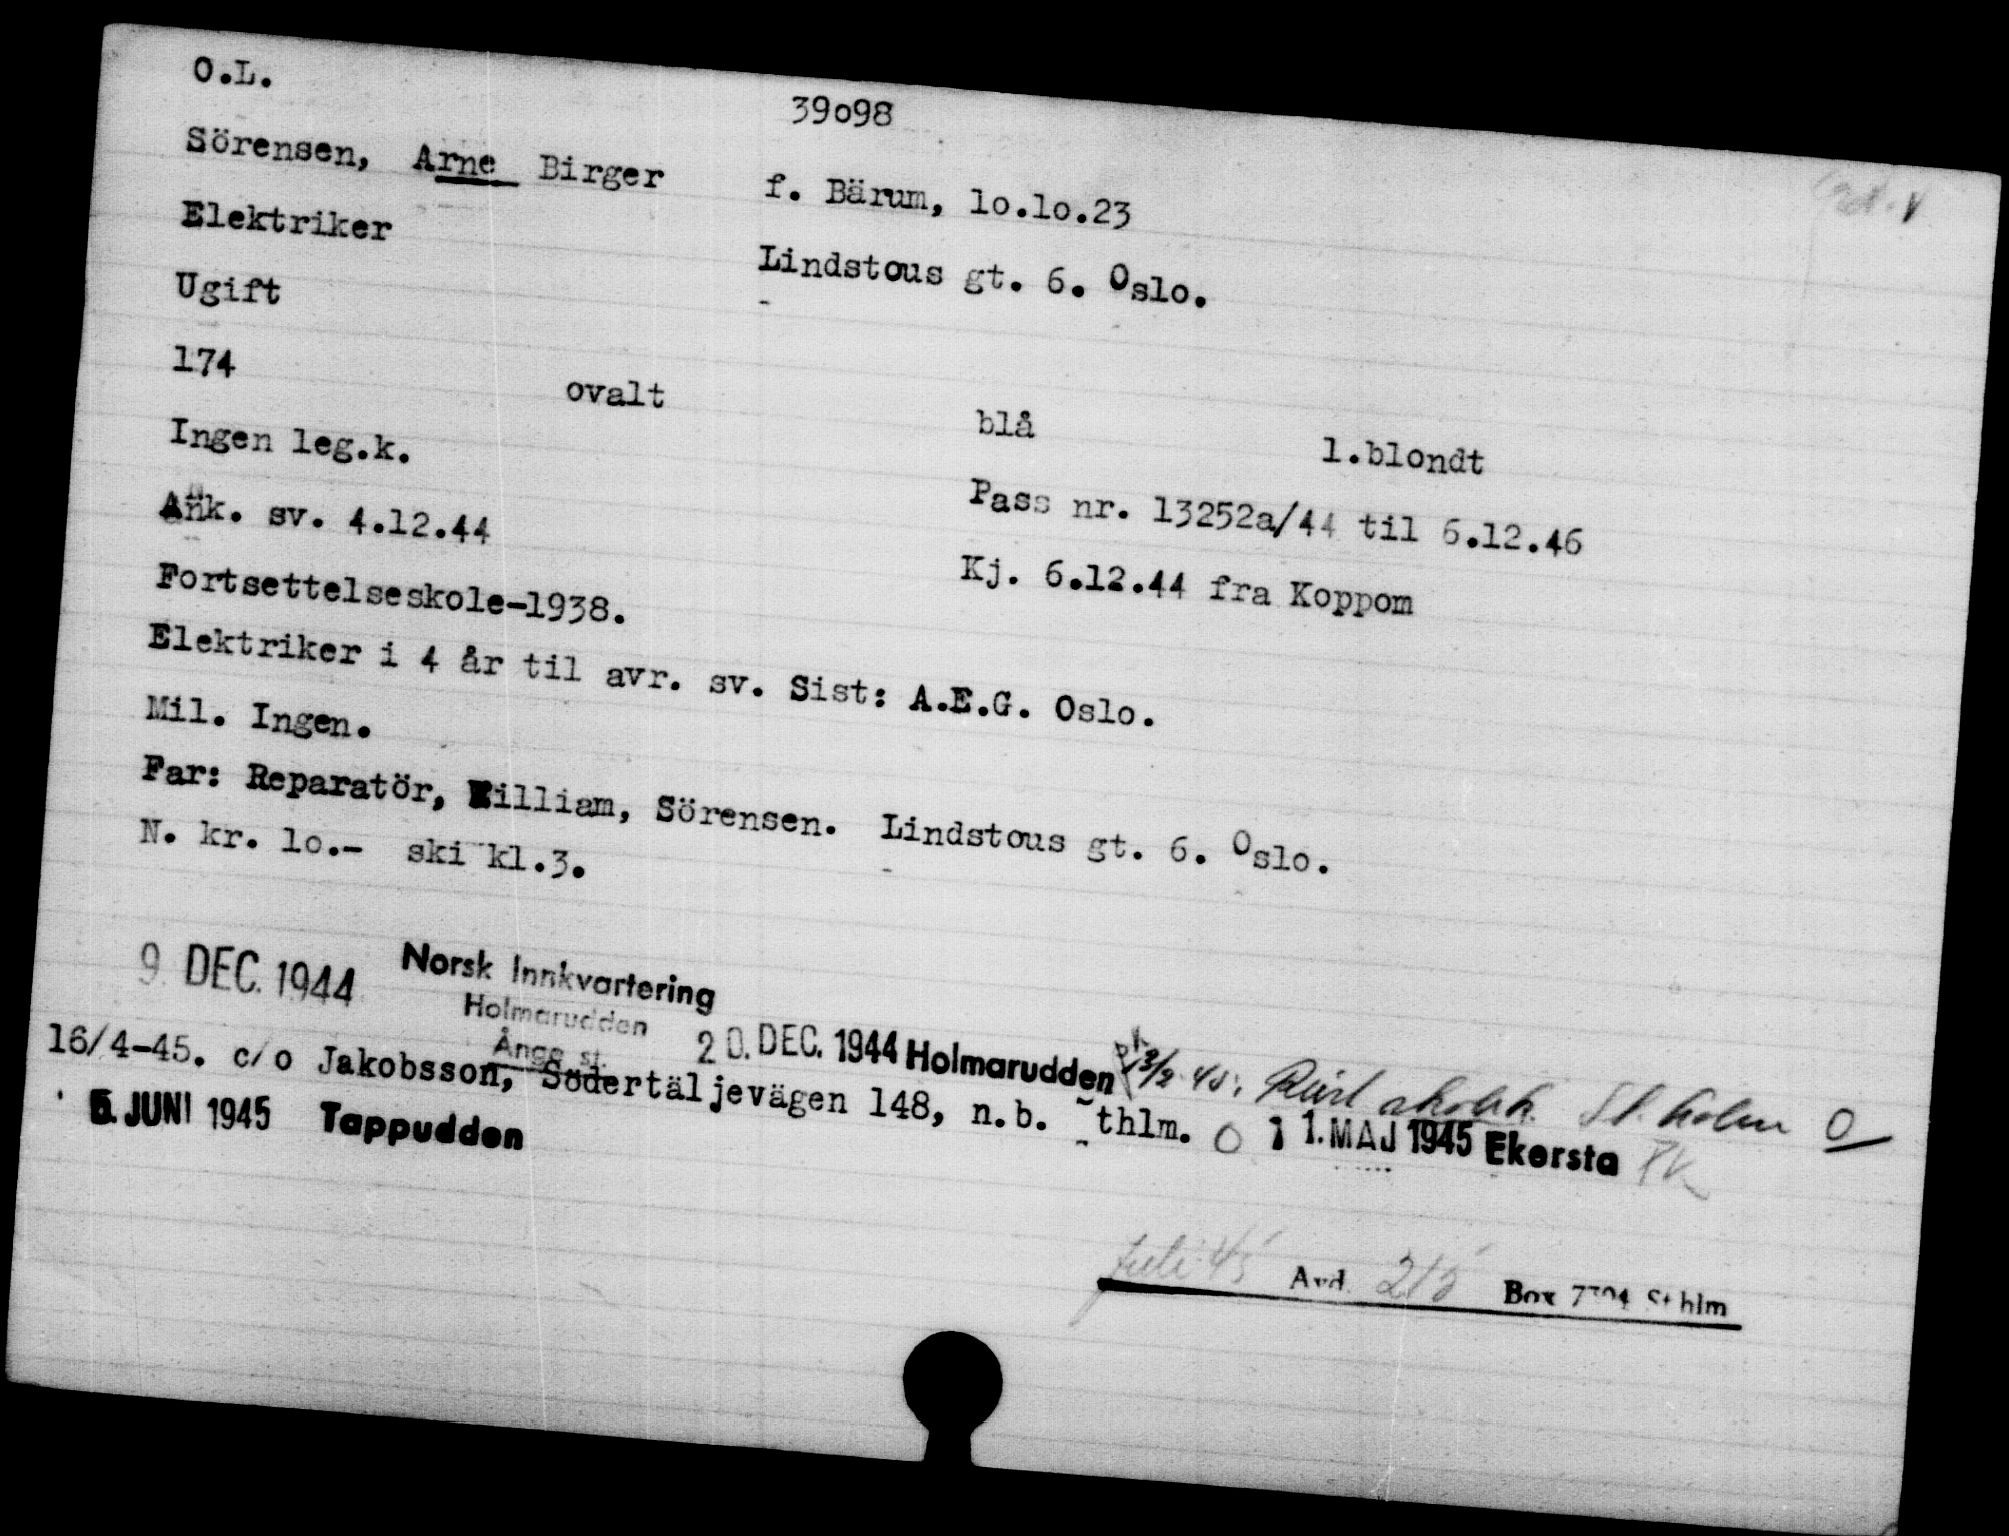 O.L.
39o98
Sörensen, Arne Birger f. Bärum, lo.lo.23
Elektriker Lindstous gt. 6. Oslo.
Ugift
174 ovalt blå l.blondt
Ingen leg.k. Pass nr. 13252a/44 til 6.12.46
Ank. sv. 4.12.44 Kj. 6.12.44 fra Koppom
Fortsettelseskole-1938.
Elektriker i 4 år til avr. sv. Sist: A.E.G. Oslo.
Mil. Ingen.
Far: Reparatör, William, Sörensen. Lindstous gt. 6. Oslo.
N. kr. lo.- ski kl.3.
9. DEC. 1944 Norsk Innkvartering
Holmarudden
Ånge st.
20. DEC. 1944 Holmarudden 13/2 45. St. holm O
16/4-45. c/o Jakobsson, Södertäljevägen 148, n.b. Sthlm. O 11. MAJ 1945 Ekersta
5. JUNI 1945 Tappudden
juli 45 Avd. 215 Box 7394 Sthlm